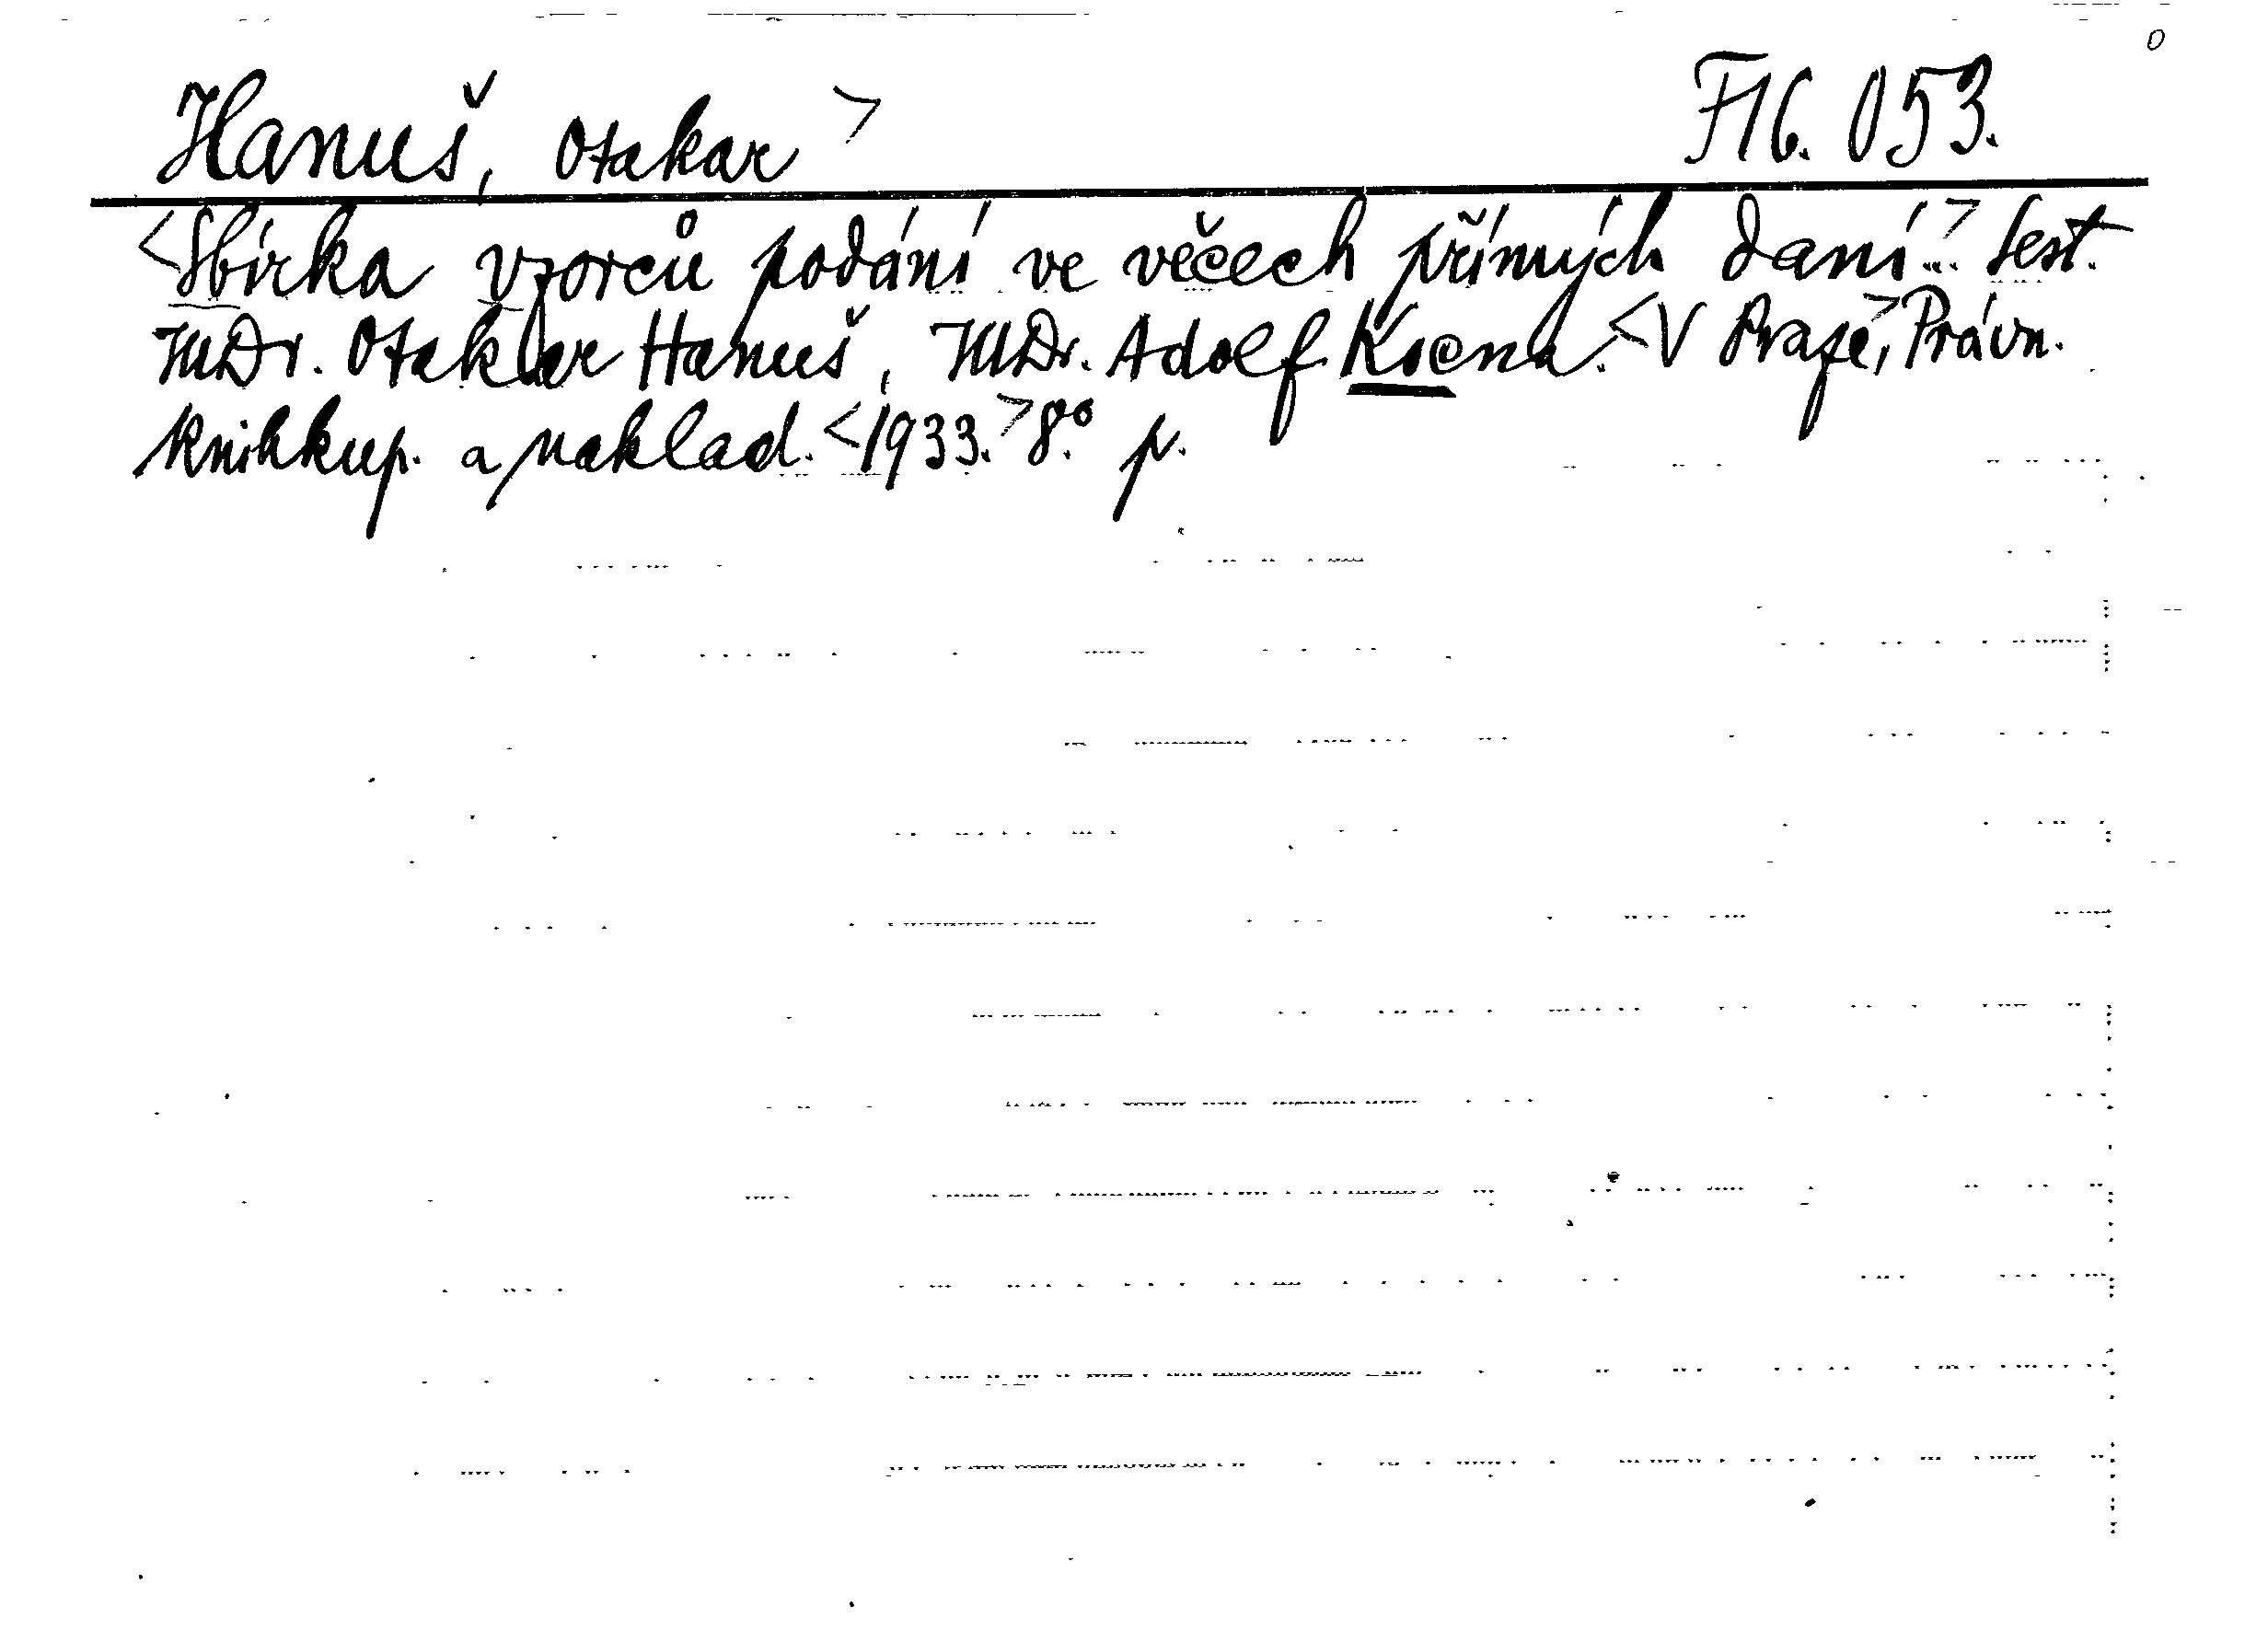 Hanuš, Otakar > F 16.053.
<Sbírka vzorců podání ve věcech přímých daní...> Sest.
JUDr. Otakar Hanuš, JUDr. Adolf Kocna. <V Praze,> Právn.
knihkup. a naklad. <1933.> 8° p.